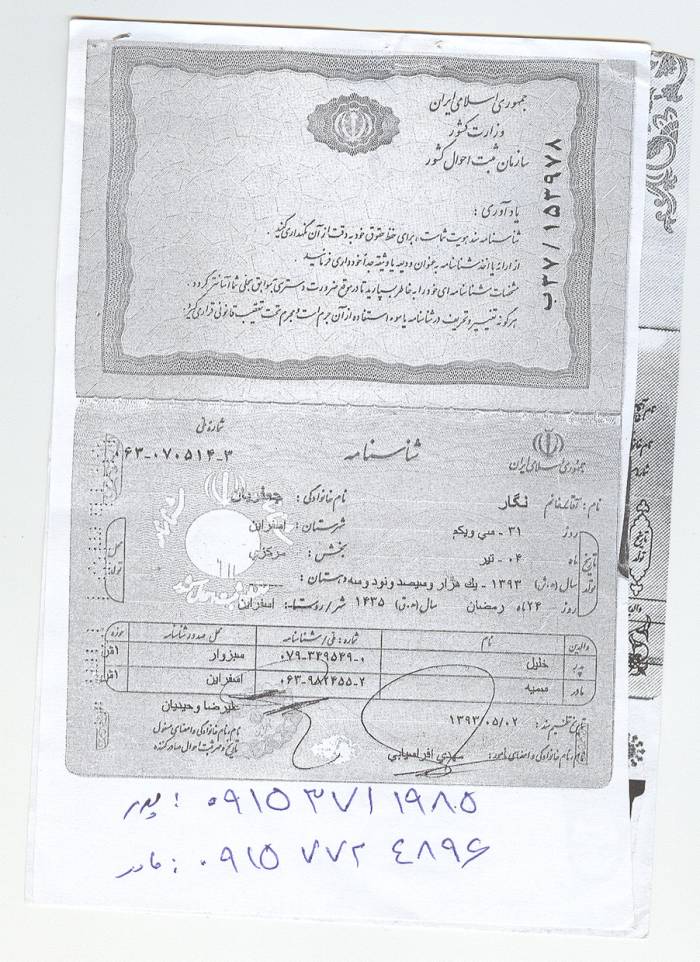 جمهوری اسلامی ایران
وزارت کشور
سازمان ثبت احوال کشور
ب۳۷/۱۵۳۹۷۸
یادآوری :
شناسنامه سند هویت شماست، برای حفظ حقوق خود به دقت از آن نگهداری کنید.
از ارائه یا اخذ شناسنامه به عنوان ودیعه یا وثیقه جداً خودداری فرمایید.
مشخصات شناسنامه ای خود را به خاطر بسپارید تا در موقع ضرورت دسترسی به سوابق سجلی شما آسانتر گردد.
هرگونه تغییر و تحریف در شناسنامه یا سوء استفاده از آن جرم است و مجرم تحت تعقیب قانونی قرار می گیرد.
جمهوری اسلامی ایران
شناسنامه
شماره ملی
۰۶۳-۰۷۰۵۱۴-۳
نام : آقا/خانم نگار نام خانوادگی : جعفریان
تاریخ تولد روز ۳۱ - سی ویکم شهرستان : اسفراین
ماه ۰۴ - تیر بخش : مرکزی
سال (ه.ش) ۱۳۹۳ - یك هزار وسیصد ونود وسه دهستان :
روز ۲۴ ماه رمضان سال (ه.ق) ۱۴۳۵ شهر/روستا: اسفراین
محل تولد:
والدین نام شماره: ملی/شناسنامه محل صدور شناسنامه حوزه
پدر خلیل ۰۷۹-۳۴۹۵۴۹-۰ سبزوار
مادر سمیه ۰۶۳-۹۸۲۴۵۵-۲ اسفراین
تاریخ تنظیم سند : ۱۳۹۳/۰۵/۰۲ علیرضا وحیدیان
نام، نام خانوادگی و امضای مأمور: مهدی افراسیابی
نام، نام خانوادگی و امضای مسئول
تاریخ و مهر ثبت احوال صادرکننده
پدر : ۰۹۱۵ ۳۷۱ ۱۹۸۵
مادر : ۰۹۱۵ ۷۷۲ ۴۸۹۶